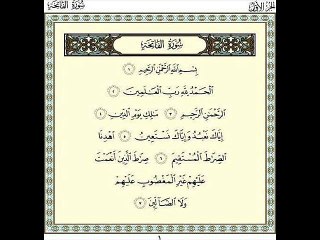 سُورَةُ الفَاتِحَةِ الجُزْءُ الأَوَّلُ
سُورَةُ الفَاتِحَةِ
بِسْمِ اللَّهِ الرَّحْمَٰنِ الرَّحِيمِ ١
الْحَمْدُ لِلَّهِ رَبِّ الْعَالَمِينَ ٢
الرَّحْمَٰنِ الرَّحِيمِ ٣ مَالِكِ يَوْمِ الدِّينِ ٤
إِيَّاكَ نَعْبُدُ وَإِيَّاكَ نَسْتَعِينُ ٥ اهْدِنَا
الصِّرَاطَ الْمُسْتَقِيمَ ٦ صِرَاطَ الَّذِينَ أَنْعَمْتَ
عَلَيْهِمْ غَيْرِ الْمَغْضُوبِ عَلَيْهِمْ
وَلَا الضَّالِّينَ ٧
١